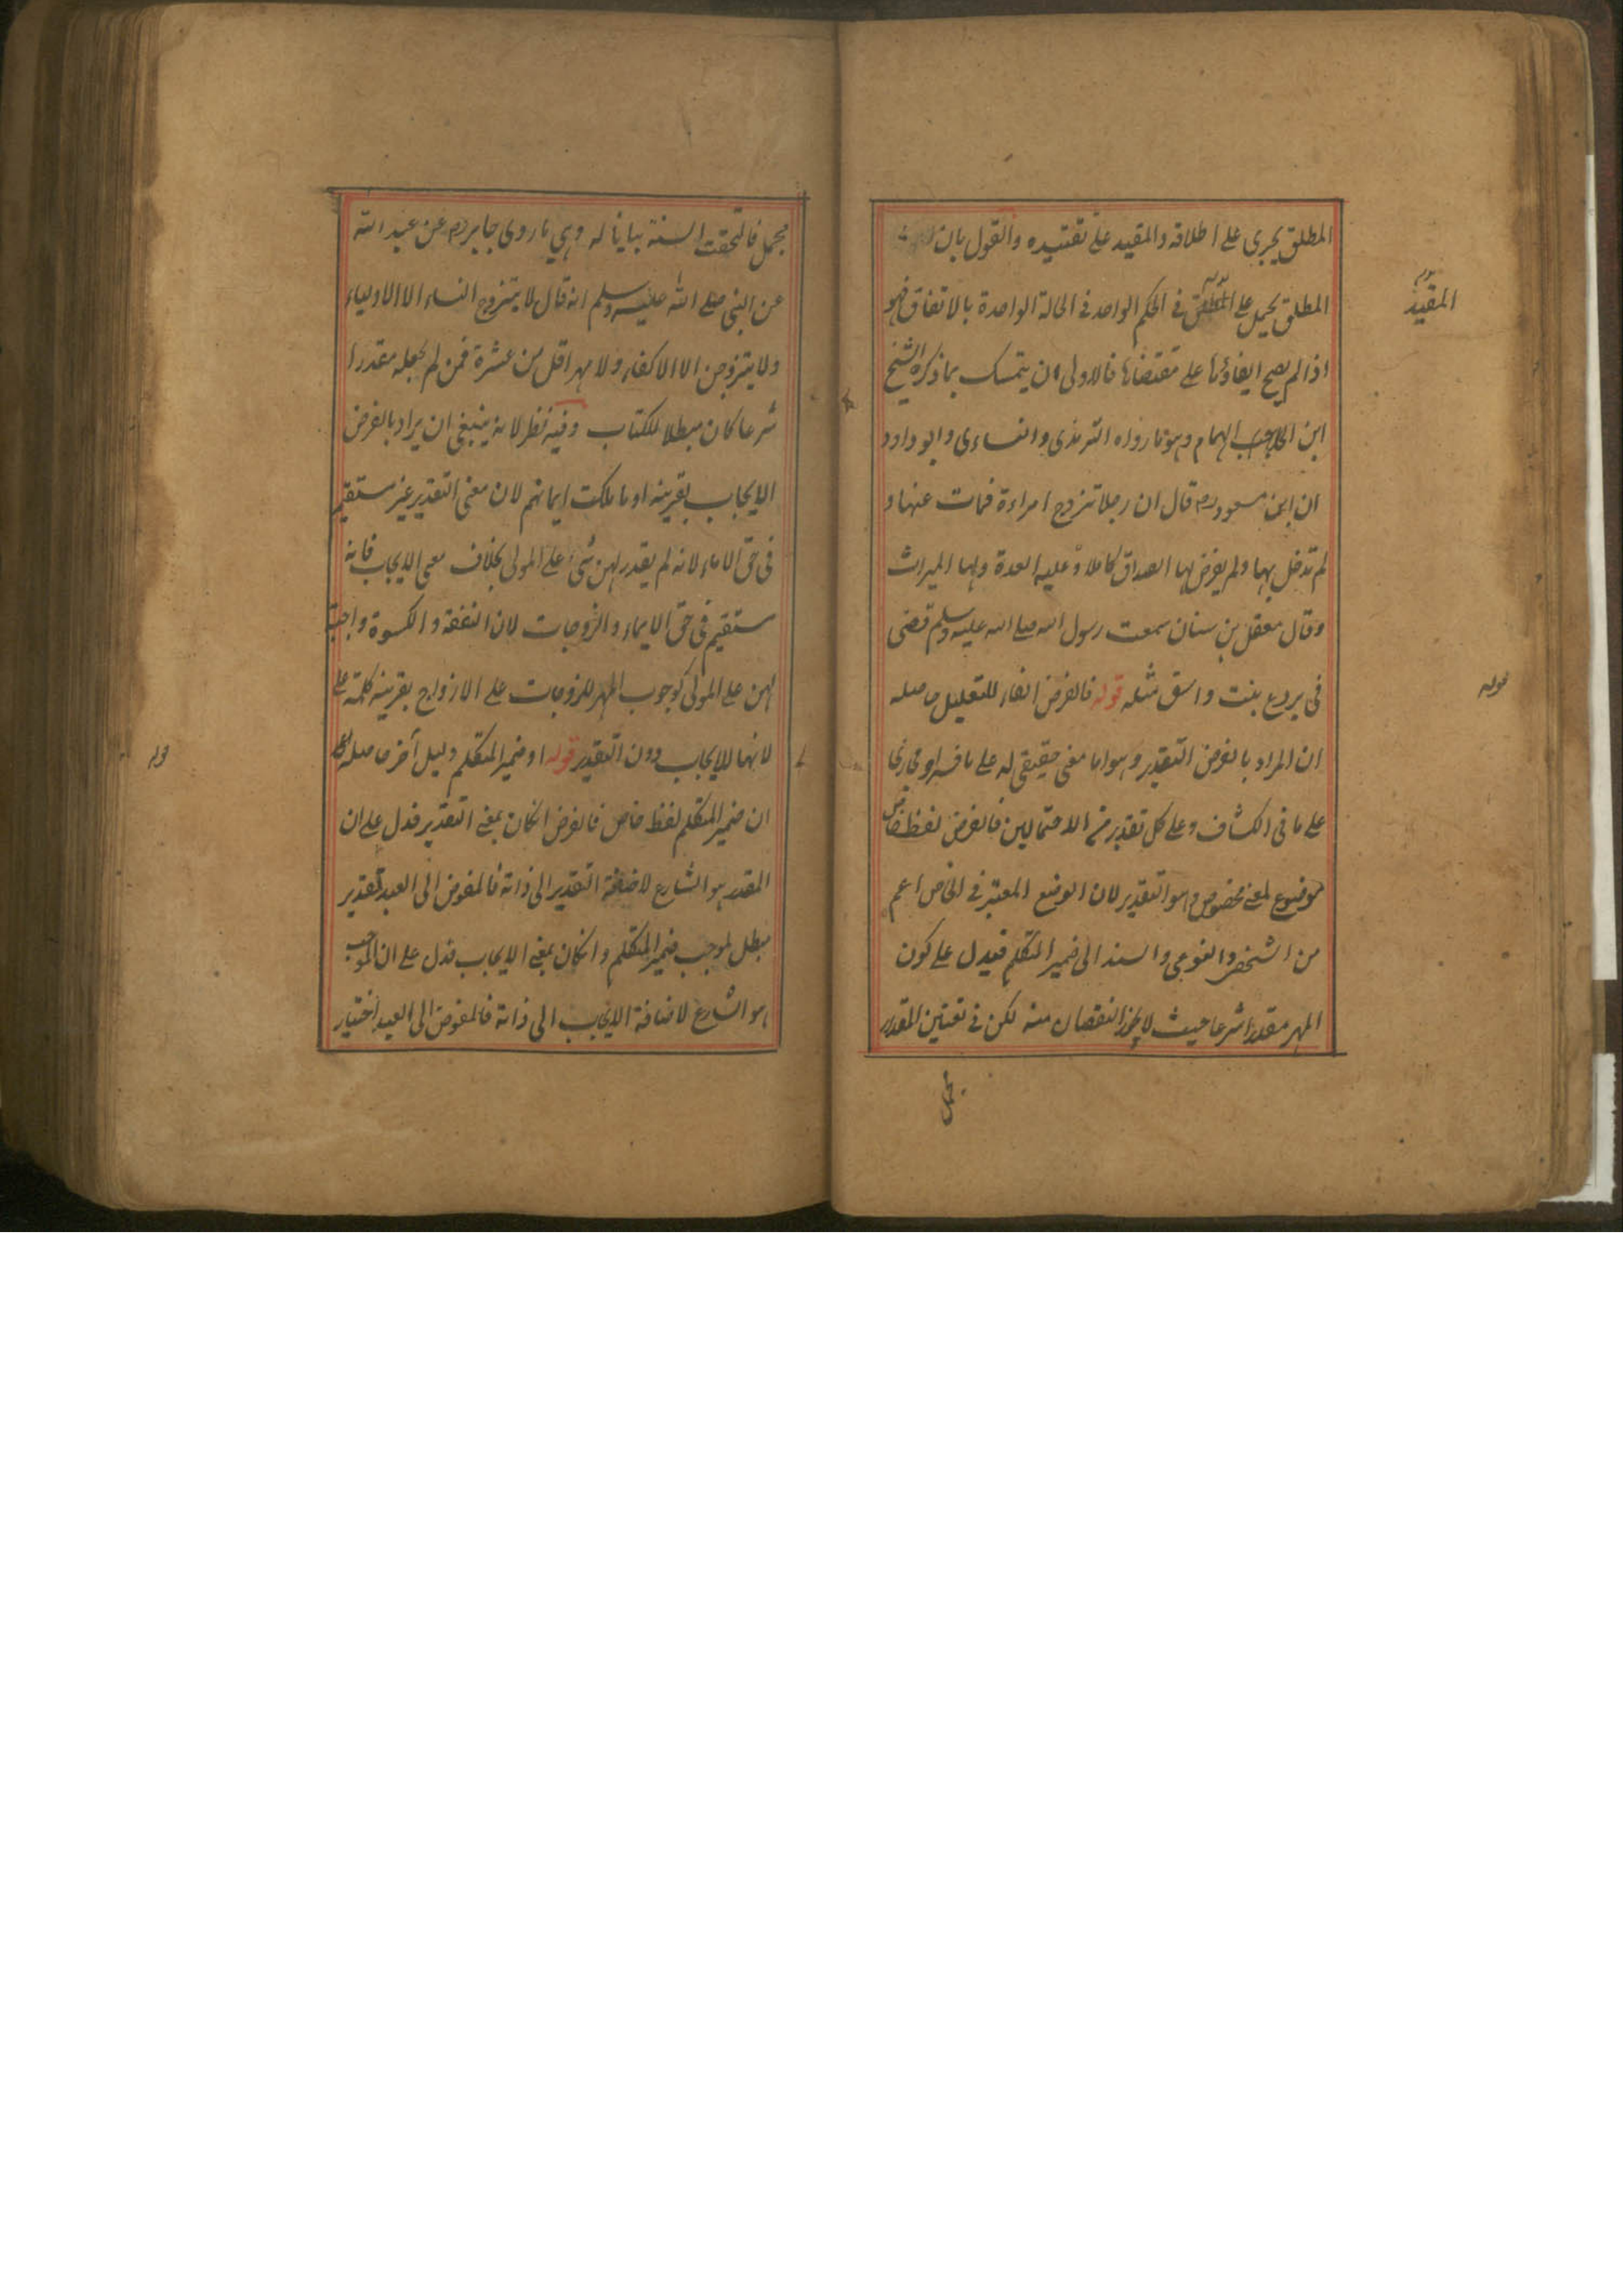 المطلق يجرى على اطلاقه والمقيد على تقييده والقول بان
المطلق يحمل على المطلق فى الحكم الواحد فى الحالة الواحدة بالاتفاق فهو
المقيد
اذا لم يصح ايفاؤها على مقتضاها فالاولى ان يتمسك بما ذكره الشيخ
ابن الهمام وهو ما رواه الترمذى والنساءى وابو داود
ان ابن مسعود رض قال ان رجلا تزوج امراءة فمات عنها و
لم تدخل بها ولم يفرض لها الصداق كاملا وعليه العدة ولها الميراث
وقال معقل بن سنان سمعت رسول الله صلى الله عليه وسلم قضى
فى بروع بنت واسق مثله قوله فالفرض الفاء للتعليل حاصله
قوله
ان المراد بالفرض التقدير وهو اما معنى حقيقى له على ما فسر او مجازى
على ما فى الكشاف وعلى كل تقدير من الاحتمالين فالفرض لفظ خاص
موضوع لمعنى مخصوص وهو التقدير لان الوضع المعتبر فى الخاص اعم
من الشخصى والنوعى والسند الى ضمير المتكلم فيدل على كون
المهر مقدرا شرعا حيث لا يجوز النقصان منه لكن فى تعيين المقدار
مجمل
مجمل فالتحقت السنة بيانا له وهي ما روى جابر رض عن عبد الله
عن النبى صلى الله عليه وسلم انه قال لا يتزوج النساء الا الاولياء
ولا يتزوجن الا الاكفاء ولا مهر اقل من عشرة فمن لم يجعله مقدرا
شرعا كان مبطلا للكتاب وفيه نظر لانه ينبغى ان يراد بالفرض
الايجاب بقرينه او ما ملكت ايمانهم لان معنى التقدير غير مستقيم
فى حق الاماء لانه لم يقدر لهن شئ على المولى بخلاف معنى الايجاب فانه
مستقيم فى حق الايماء والزوجات لان النفقة والكسوة واجبة
لهن على المولى كوجوب المهر للزوجات على الازواج بقرينه كلمة على
لانها للايجاب دون التقدير قوله او ضمير المتكلم دليل آخر حاصله
قوله
ان ضمير المتكلم لفظ خاص فالفرض ان كان بمعنى التقدير فدل على ان
المقدر هو الشارع لاضافة التقدير الى ذاته فالمفوض الى العبد تقدير
مبطل لموجب ضمير المتكلم وان كان بمعنى الايجاب فدل على ان الموجب
هو الشارع لاضافة الايجاب الى ذاته فالمفوض الى العبد اختيار